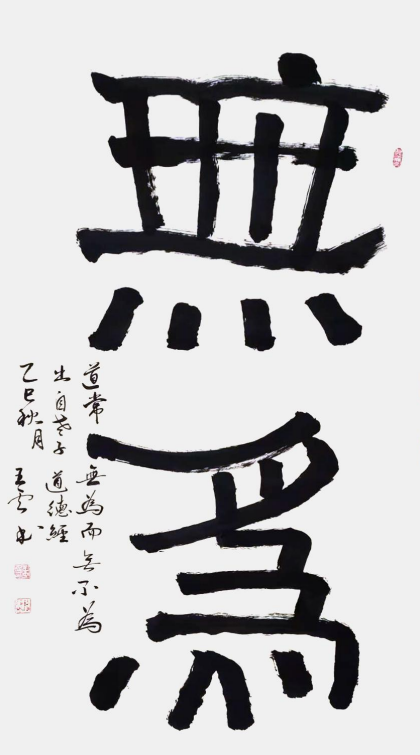 無為
道常無為而無不為
出自老子道德經
乙巳秋月 王雲书